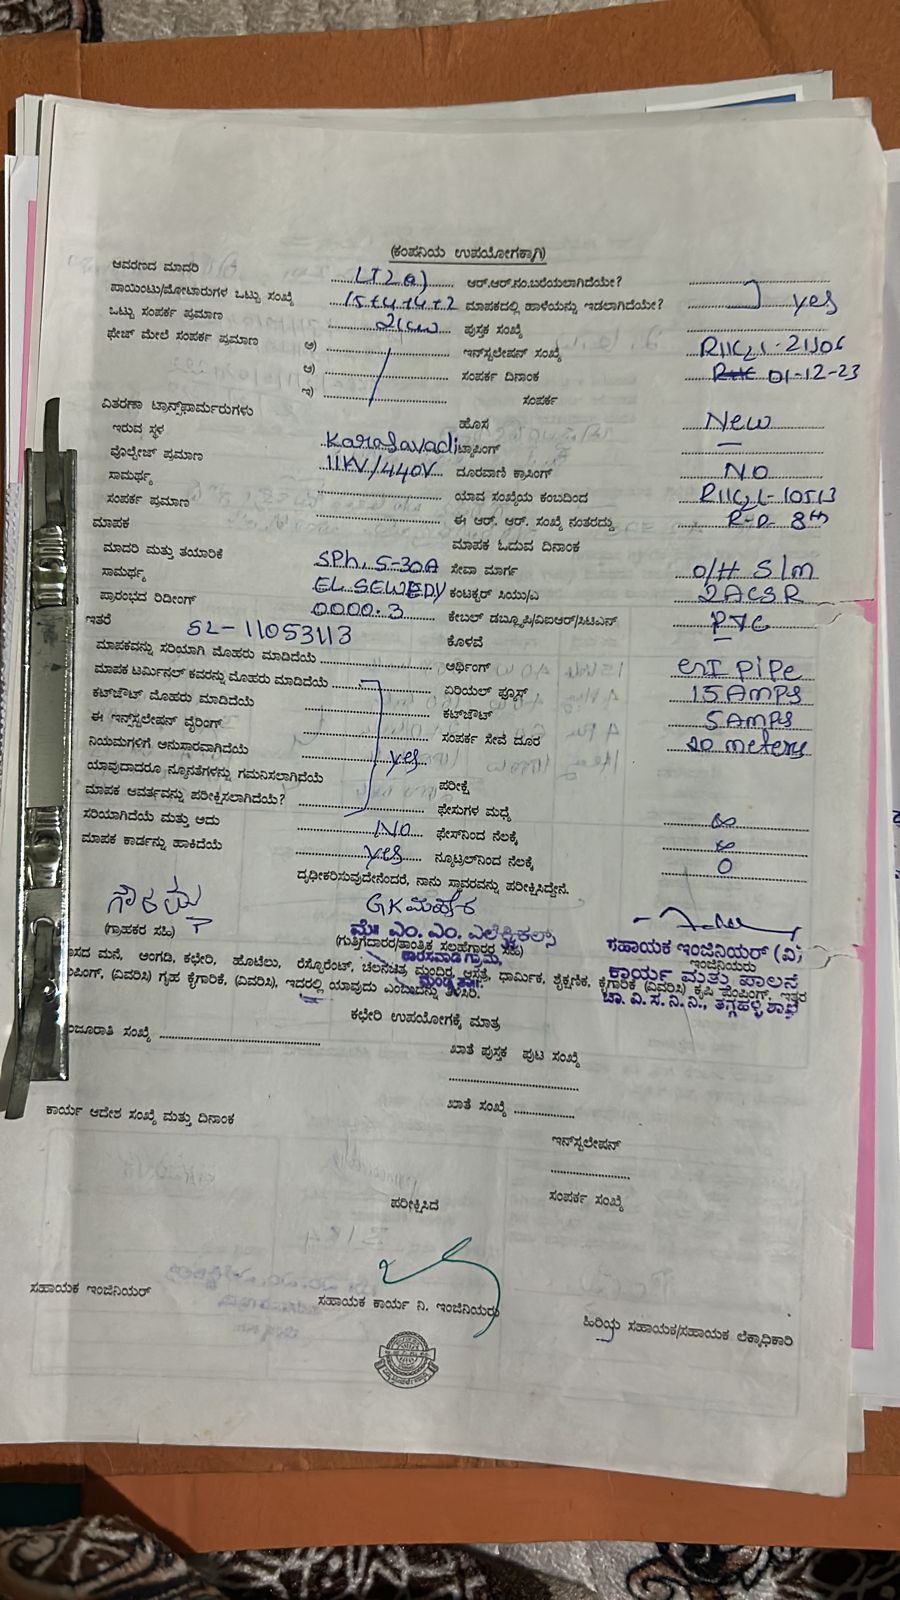 (ಕಂಪನಿಯ ಉಪಯೋಗಕ್ಕಾಗಿ)
ಆವರಣದ ಮಾದರಿ LT2a) ಆರ್.ಆರ್.ನಂ.ಬರೆಯಲಾಗಿದೆಯೇ?
ಪಾಯಿಂಟು/ಮೋಟಾರುಗಳ ಒಟ್ಟು ಸಂಖ್ಯೆ 15+4+4+2 ಮಾಪಕದಲ್ಲಿ ಹಾಳೆಯನ್ನು ಇಡಲಾಗಿದೆಯೇ? yes
ಒಟ್ಟು ಸಂಪರ್ಕ ಪ್ರಮಾಣ 2kw ಪುಸ್ತಕ ಸಂಖ್ಯೆ
ಫೇಜ್ ಮೇಲೆ ಸಂಪರ್ಕ ಪ್ರಮಾಣ ಅ) ಇನ್‌ಸ್ಟಲೇಷನ್ ಸಂಖ್ಯೆ
ಆ) ಸಂಪರ್ಕ ದಿನಾಂಕ 01-12-23
ಇ) ಸಂಪರ್ಕ
ವಿತರಣಾ ಟ್ರಾನ್ಸ್‌ಫಾರ್ಮರುಗಳು ಹೊಸ New
ಇರುವ ಸ್ಥಳ Karasavadi ಟ್ಯಾಪಿಂಗ್ –
ವೊಲ್ಟೇಜ್ ಪ್ರಮಾಣ 11KV/440V ದೂರವಾಣಿ ಕ್ರಾಸಿಂಗ್ NO
ಸಾಮರ್ಥ್ಯ ಯಾವ ಸಂಖ್ಯೆಯ ಕಂಬದಿಂದ
ಸಂಪರ್ಕ ಪ್ರಮಾಣ ಈ ಆರ್. ಆರ್. ಸಂಖ್ಯೆ ನಂತರದ್ದು 8th
ಮಾಪಕ ಮಾಪಕ ಓದುವ ದಿನಾಂಕ
ಮಾದರಿ ಮತ್ತು ತಯಾರಿಕೆ SPh, 5-30A ಸೇವಾ ಮಾರ್ಗ O/H S/m
ಸಾಮರ್ಥ್ಯ EL SEWEDY ಕಂಟಕ್ಟರ್ ಸಿಯು/ಎ 2ACSR
ಪ್ರಾರಂಭದ ರಿಡೀಂಗ್ 0000.3 ಕೇಬಲ್ ಡಬ್ಲ್ಯೂಪಿ/ವಿಐಆರ್/ಸಿಟಿಎಸ್ PVC
ಇತರೆ SL-11053113 ಕೊಳವೆ
ಮಾಪಕವನ್ನು ಸರಿಯಾಗಿ ಮೊಹರು ಮಾಡಿದೆಯೆ ಅರ್ಥಿಂಗ್ GI PiPe
ಮಾಪಕ ಟರ್ಮಿನಲ್ ಕವರನ್ನು ಮೊಹರು ಮಾಡಿದೆಯೆ ಏರಿಯಲ್ ಫ್ಯೂಸ್ 15 AMPS
ಕಟ್‌ಜೌಟ್ ಮೊಹರು ಮಾಡಿದೆಯೆ ಕಟ್‌ಜೌಟ್ 5 AMPS
ಈ ಇನ್‌ಸ್ಟಲೇಷನ್ ವೈರಿಂಗ್ ಸಂಪರ್ಕ ಸೇವೆ ದೂರ 20 meters
ನಿಯಮಗಳಿಗೆ ಅನುಸಾರವಾಗಿದೆಯೆ yes
ಯಾವುದಾದರೂ ನ್ಯೂನತೆಗಳನ್ನು ಗಮನಿಸಲಾಗಿದೆಯೆ ಪರೀಕ್ಷೆ
ಮಾಪಕ ಆವರ್ತವನ್ನು ಪರೀಕ್ಷಿಸಲಾಗಿದೆಯೆ? ಫೇಸುಗಳ ಮಧ್ಯೆ ∞
ಸರಿಯಾಗಿದೆಯೆ ಮತ್ತು ಅದು NO ಫೇಸ್‌ನಿಂದ ನೆಲಕ್ಕೆ ∞
ಮಾಪಕ ಕಾರ್ಡನ್ನು ಹಾಕಿದೆಯೆ yes ನ್ಯೂಟ್ರಲ್‌ನಿಂದ ನೆಲಕ್ಕೆ 0
ದೃಢೀಕರಿಸುವುದೇನೆಂದರೆ, ನಾನು ಸ್ಥಾವರವನ್ನು ಪರೀಕ್ಷಿಸಿದ್ದೇನೆ.
ಗೌರಮ್ಮ
(ಗ್ರಾಹಕರ ಸಹಿ) ಮೆ: ಎಂ. ಎಂ. ಎಲೆಕ್ಟ್ರಿಕಲ್ಸ್ ಸಹಾಯಕ ಇಂಜಿನಿಯರ್ (ವಿ)
(ಗುತ್ತಿಗೆದಾರರ/ತಾಂತ್ರಿಕ ಸಲಹೆಗಾರರ ಸಹಿ) ಇಂಜಿನಿಯರು
ಕಾರಸವಾಡಿ ಗ್ರಾಮ, ಕಾರ್ಯ ಮತ್ತು ಪಾಲನೆ
ಮಂಡ್ಯ ತಾ. ಚಾ. ವಿ. ಸ. ನಿ. ನಿ., ತಗ್ಗಹಳ್ಳಿ ಶಾಖೆ
ಾಸದ ಮನೆ, ಅಂಗಡಿ, ಕಛೇರಿ, ಹೊಟೇಲು, ರೆಸ್ಟೊರೆಂಟ್, ಚಲನಚಿತ್ರ ಮಂದಿರ, ಆಸ್ಪತ್ರೆ, ಧಾರ್ಮಿಕ, ಶೈಕ್ಷಣಿಕ, ಕೈಗಾರಿಕೆ (ವಿವರಿಸಿ) ಕೃಷಿ ಪಂಪಿಂಗ್, ಇತರ
ಪಂಪಿಂಗ್, (ವಿವರಿಸಿ) ಗೃಹ ಕೈಗಾರಿಕೆ, (ವಿವರಿಸಿ), ಇದರಲ್ಲಿ ಯಾವುದು ಎಂಬುದನ್ನು ತಿಳಿಸಿರಿ.
ಕಛೇರಿ ಉಪಯೋಗಕ್ಕೆ ಮಾತ್ರ
ಂಜೂರಾತಿ ಸಂಖ್ಯೆ ಖಾತೆ ಪುಸ್ತಕ ಪುಟ ಸಂಖ್ಯೆ
ಖಾತೆ ಸಂಖ್ಯೆ
ಕಾರ್ಯ ಆದೇಶ ಸಂಖ್ಯೆ ಮತ್ತು ದಿನಾಂಕ
ಇನ್‌ಸ್ಟಲೇಷನ್
ಸಂಪರ್ಕ ಸಂಖ್ಯೆ
ಪರೀಕ್ಷಿಸಿದೆ
ಸಹಾಯಕ ಇಂಜಿನಿಯರ್ ಸಹಾಯಕ ಕಾರ್ಯ ನಿ. ಇಂಜಿನಿಯರು ಹಿರಿಯ ಸಹಾಯಕ/ಸಹಾಯಕ ಲೆಕ್ಕಾಧಿಕಾರಿ